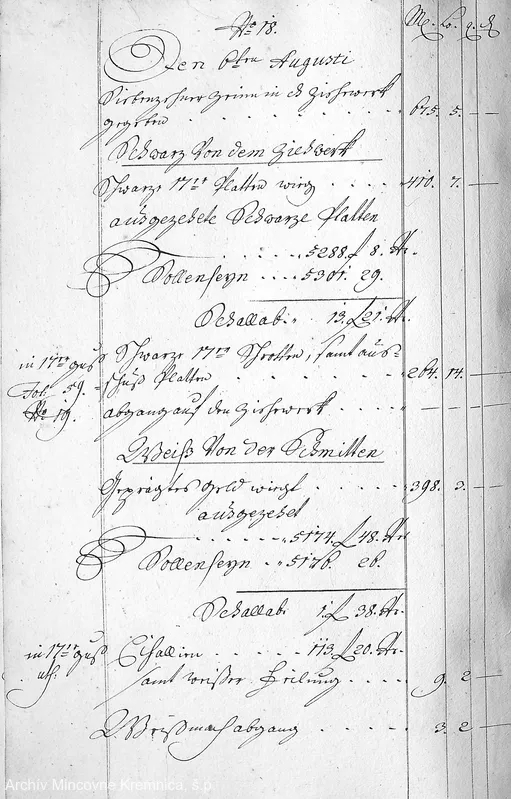 No 18.
M. Lo. q. d
Den 6ten Augusti
Siebenzehner Zeinen in d Ziehewerk
gegeben . . . . . . . 675. 5. —
Schwarz Von dem Ziehwerk
Schwarze 17ner Platten wieg . . . . 410. 7. —
ausgezehlte Schwarze Platten
. . . . . 5288. f 8. Xr.
Sollenseyn . . . . 5301. 29.
Schallab. . 13. f 21. Xr.
in 17ner guss
Fol. 59.
No 19.
Schwarze 17ner Schrotten, samt aus-
schuss Platten . . . . . 264. 14. —
abgang auf dem Ziehewerk . . . . — — —
Weiss Von der Schmitten
Geprägtes Geld wiegt . . . . . 398. 3. —
ausgezehlt
. . . . . 5174. f 48. Xr
Sollenseyn . . 5176. 26.
Schallab. 1. f 38. Xr.
in 17ner guss
Cisallien . . . . . 113. f 20. Xr.
samt weisser Feilung . . . . 9. 2 —
Weissmach abgang . . . . . 3. 2 —
Archív Mincovne Kremnica, š.p